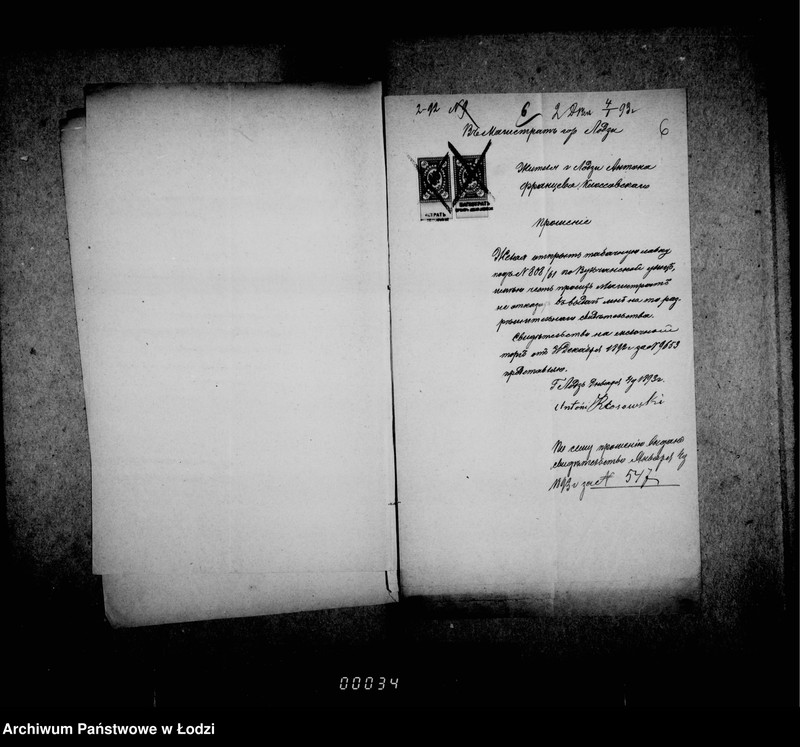 2-92 № 9 6 2 4/I 93 г
Въ Магистратъ гор Лодзи 6
Жителя г Лодзи Антона
Францева Клосовскаго
Прошеніе
Желая открыть табачную лавку
подъ № 808/61 по улицѣ,
имѣю честь просить Магистратъ
не отказ въ выдачѣ мнѣ на то раз
рѣшительнаго свидѣтельства.
Свидѣтельство на мелочной
торгъ отъ Декабря 1892 г за № 9653
представляю.
Г Лодзь Января 4 1893 г.
Antoni Kłosowski
МАГИСТРАТЪ
По сему прошенію выдано
свидѣтельство Января 4
1893 г за № 547
00034
Archiwum Państwowe w Łodzi